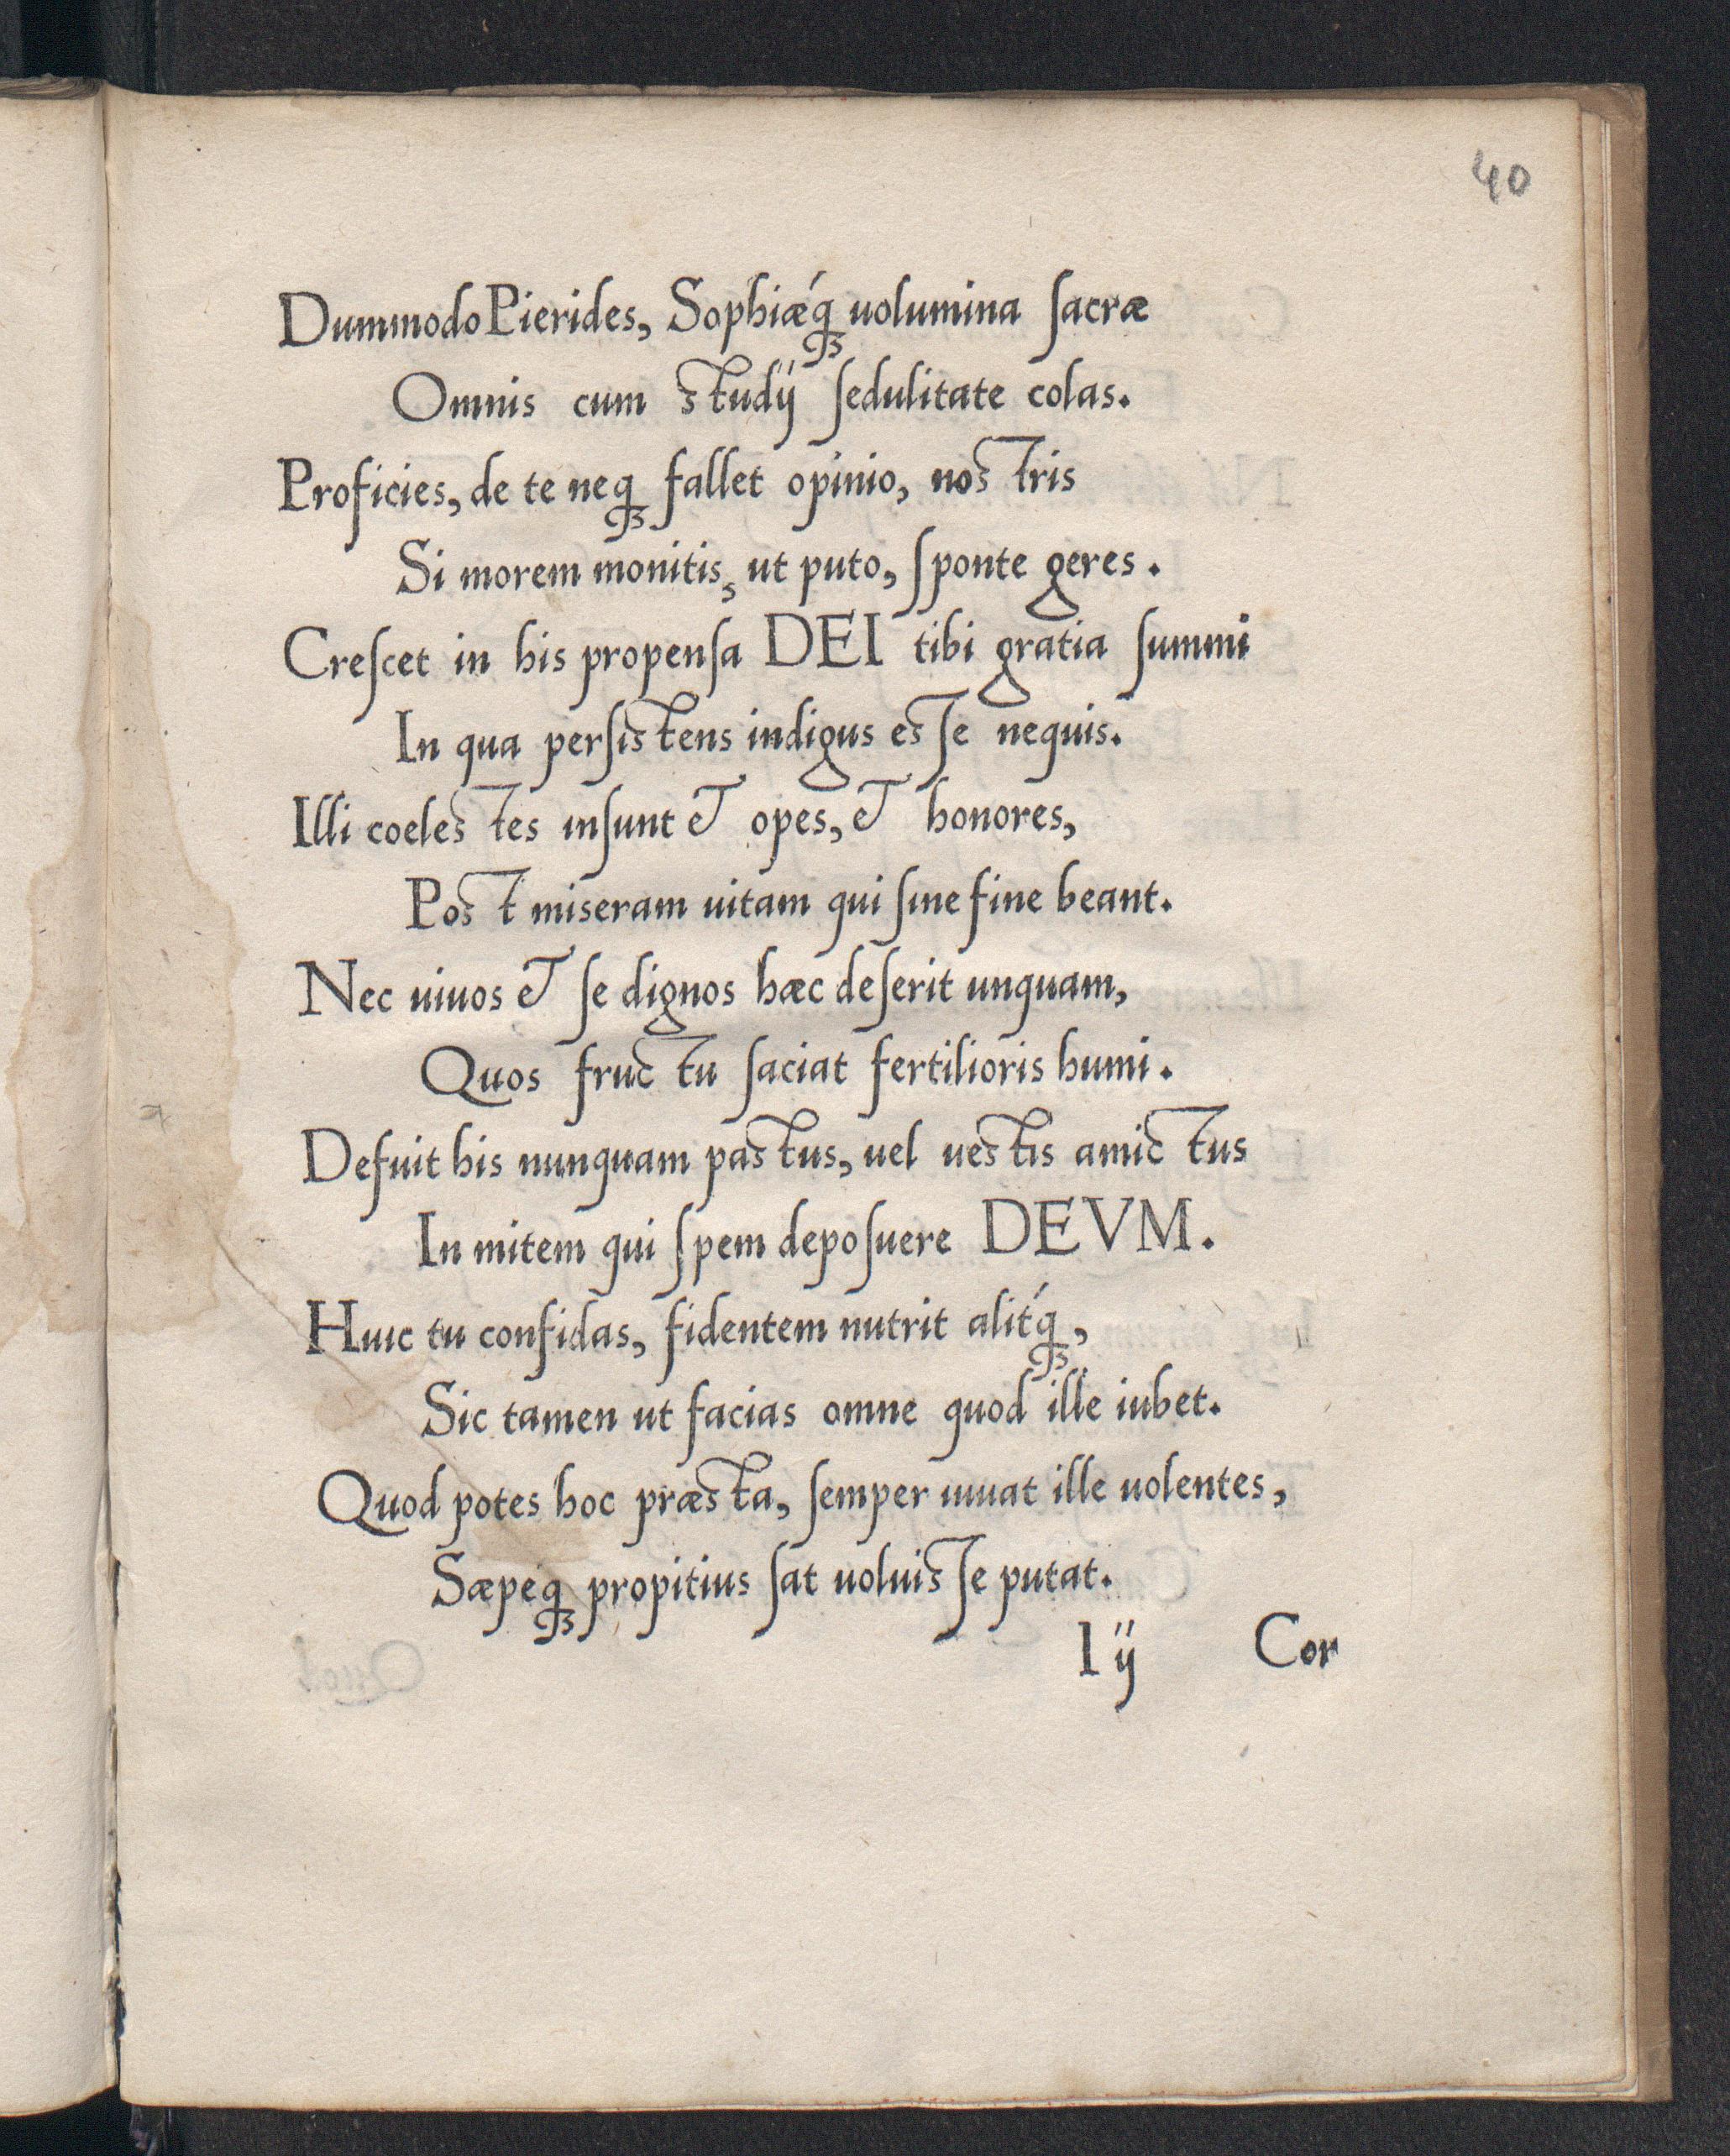 40
Dummodo Pierides, Sophiæq́ꝫ uolumina ſacræ
Omnis cum studij ſedulitate colas.
Proficies, de te neqꝫ fallet opinio, nostris
Si morem monitis, ut puto, ſponte geres.
Creſcet in his propenſa DEI tibi gratia ſummi
In qua perſistens indigus esſe nequis.
Illi coelestes inſunt & opes, & honores,
Post miseram uitam qui ſine fine beant.
Nec uiuos & ſe dignos hæc deſerit unquam,
Quos fructu ſaciat fertilioris humi.
Defuit his nunquam pastus, uel uestis amictus
In mitem qui ſpem depoſuere DEVM.
Huic tu confidas, fidentem nutrit alitq́ꝫ,
Sic tamen ut facias omne quod ille iubet.
Quod potes hoc præsta, ſemper iuuat ille uolentes,
Sæpeqꝫ propitius ſat uoluisſe putat.
I ij Cor